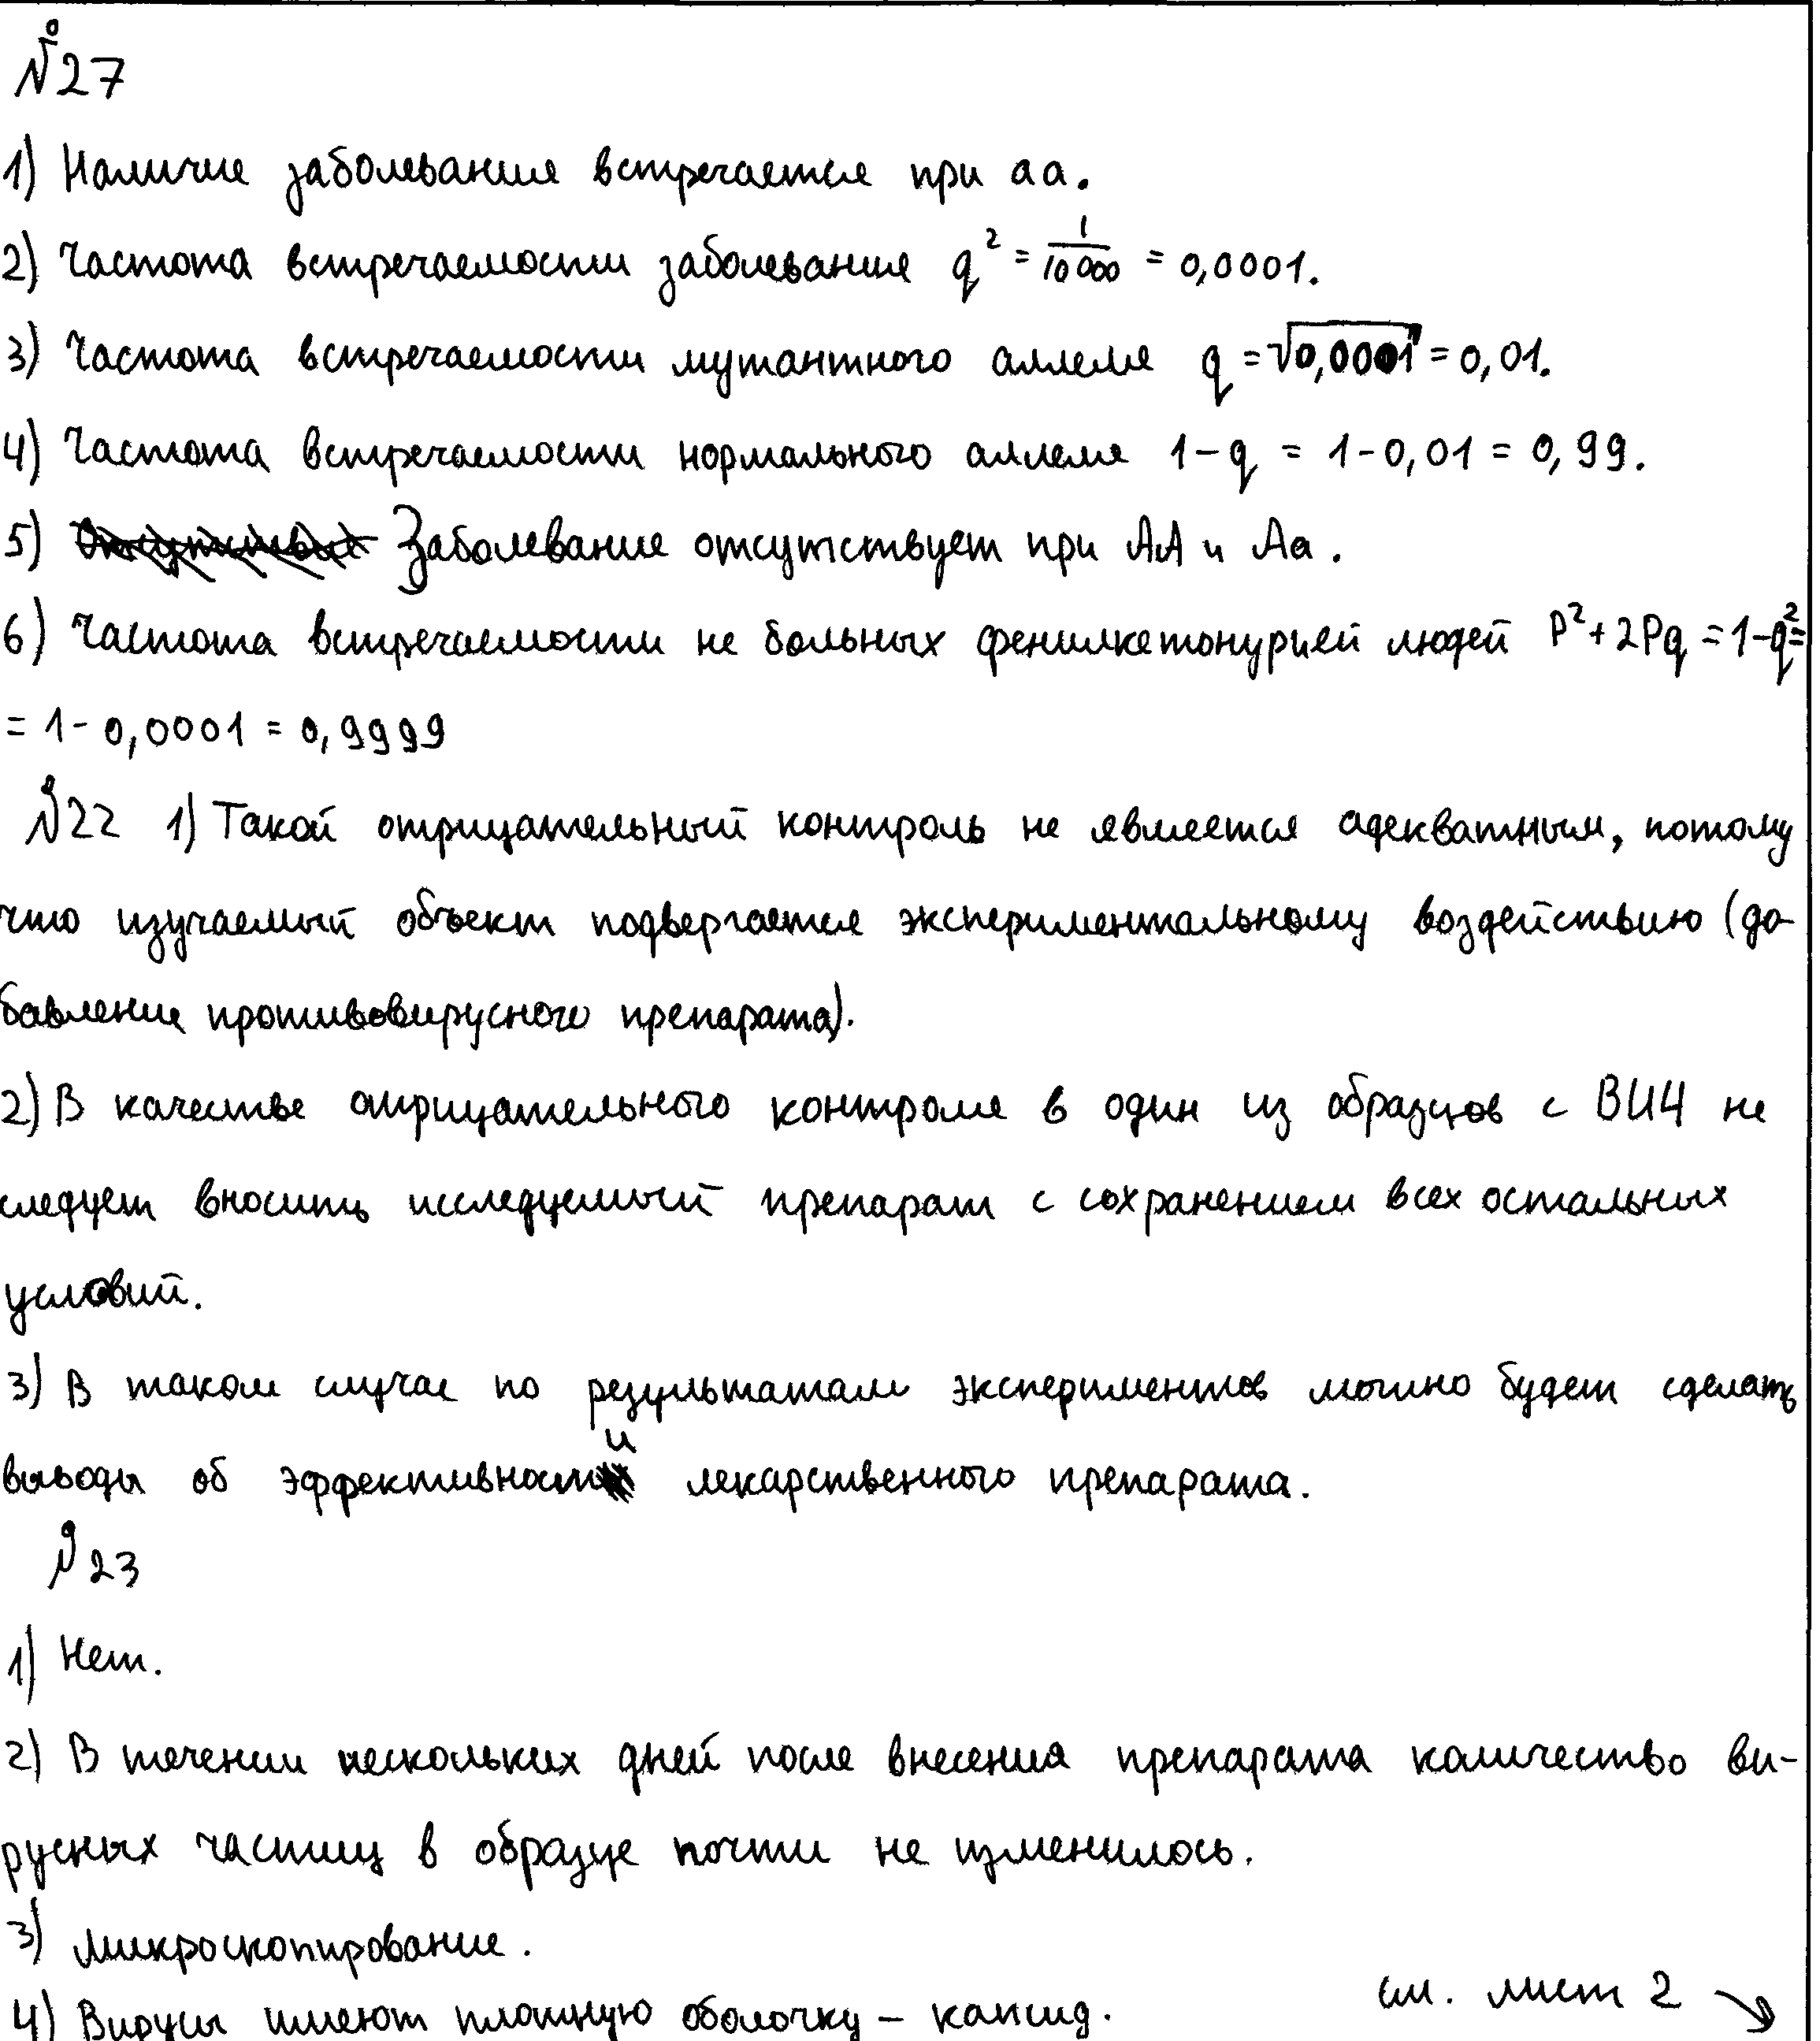 №27
1) Наличие заболевания встречается при аа.
2) Частота встречаемости заболевания q² = 1/10000 = 0,0001.
3) Частота встречаемости мутантного аллеля q = √0,0001 = 0,01.
4) Частота встречаемости нормального аллеля 1-q = 1-0,01 = 0,99.
5) Заболевание отсутствует при АА и Аа.
6) Частота встречаемости не больных фенилкетонурией людей P² + 2Pq = 1-q² =
= 1- 0,0001 = 0,9999
№22 1) Такой отрицательный контроль не является адекватным, потому
что изучаемый объект подвергается экспериментальному воздействию (до-
бавление противовирусного препарата).
2) В качестве отрицательного контроля в один из образцов с ВИЧ не
следует вносить исследуемый препарат с сохранением всех остальных
условий.
3) В таком случае по результатам экспериментов можно будет сделать
выводы об эффективности лекарственного препарата.
№23
1) Нет.
2) В течении нескольких дней после внесения препарата количество ви-
русных частиц в образце почти не изменилось.
3) Микроскопирование.
4) Вирусы имеют плотную оболочку – капсид.
см. лист 2 →